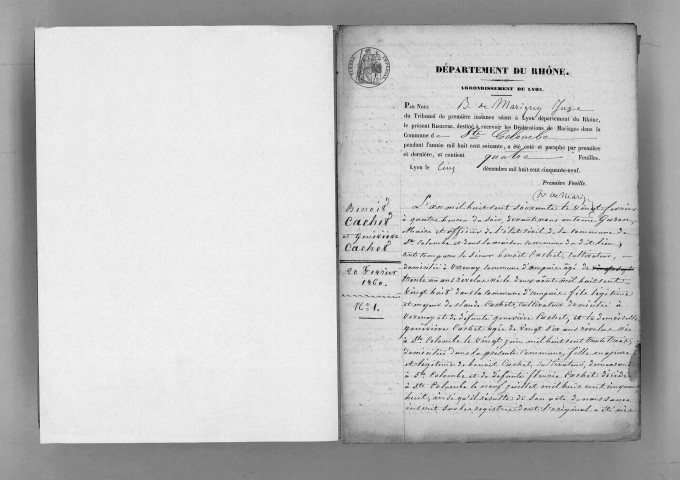 DÉPARTEMENT DU RHÔNE.
ARRONDISSEMENT DE LYON.
PAR NOUS B. de Marigny Juge
du Tribunal de première instance séant à Lyon, département du Rhône,
le présent REGISTRE, destiné à recevoir les Déclarations de Mariages dans la
Commune de Ste Colombe
pendant l'année mil huit cent soixante, a été coté et paraphé par première
et dernière, et contient quatre Feuilles.
Lyon le cinq décembre mil huit cent cinquante-neuf.
Première Feuille.
Benoit
Cachet
et Geneviève
Cachet
20 Février
1860.
No 1.
L'an mil huit cent soixante le vingt février
à quatre heures du soir, devant nous antoine
Maire et officier de l'état civil de la commune de
Ste Colombe et dans la maison commune du dit lieu,
ont comparu le sieur benoit Cachet, cultivateur,
domicilié à Verenay commune d'ampuis âgé de vingt sept
trente un ans révolus né le deux août mil huit cent
vingt huit dans la commune d'ampuis fils légitime
et majeur de claude Cachet, cultivateur domicilié à
Verenay et de défunte geneviève Cachet, et la demoiselle
geneviève Cachet âgée de vingt six ans révolus née
à Ste Colombe le vingt juin mil huit cent trente trois
domiciliée dans la présente commune, fille majeure
et légitime de benoit Cachet, cultivateur, demeurant
à Ste Colombe et de défunte fleurie Cachet décédée
à Ste Colombe le neuf juillet mil huit cent cinquante
huit, ainsi qu'il résulte de son acte de naissance
inscrit sur les registres dont l'original a été mis